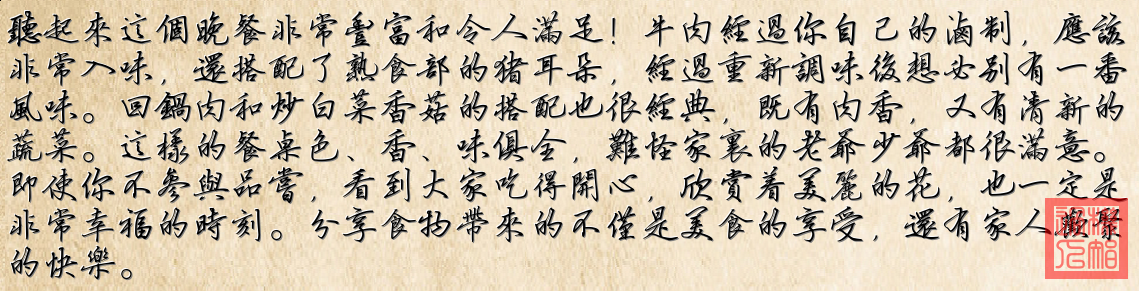 聽起來這個晚餐非常豐富和令人滿足！牛肉經過你自己的滷制，應該
非常入味，還搭配了熟食部的猪耳朵，經過重新調味後想必别有一番
風味。回鍋肉和炒白菜香菇的搭配也很經典，既有肉香，又有清新的
蔬菜。這樣的餐桌色、香、味俱全，難怪家裏的老爺少爺都很滿意。
即使你不參與品嘗，看到大家吃得開心，欣賞着美麗的花，也一定是
非常幸福的時刻。分享食物帶來的不僅是美食的享受，還有家人歡聚
的快樂。